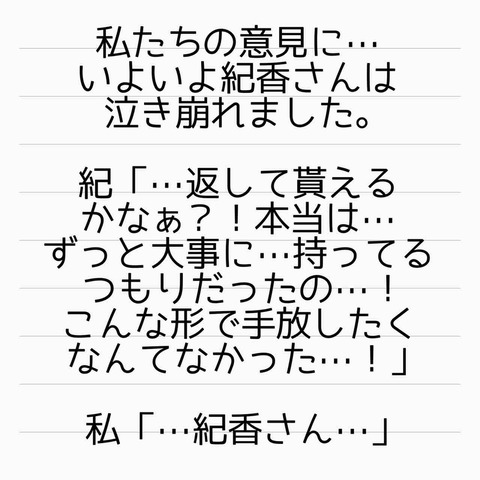 私たちの意見に…
いよいよ紀香さんは
泣き崩れました。
紀「…返して貰える
かなぁ？！本当は…
ずっと大事に…持ってる
つもりだったの…！
こんな形で手放したく
なんてなかった…！」
私「…紀香さん…」